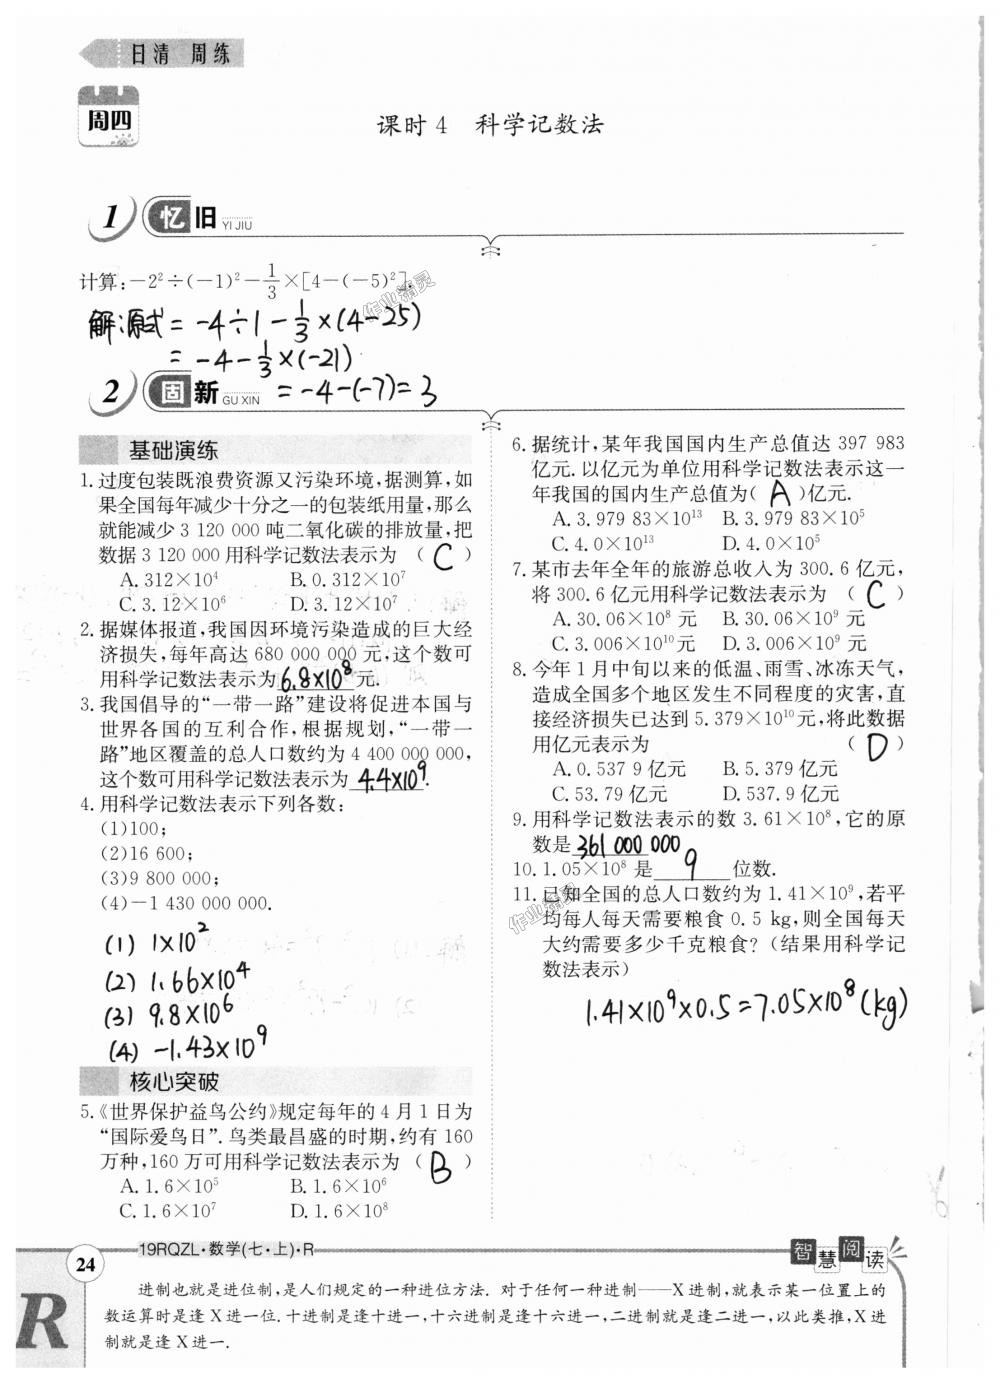 日清 周练
周四
课时4 科学记数法
1 忆旧 YI JIU
计算:-2²÷(-1)²-1/3×[4-(-5)²].
解:源式=-4÷1-1/3×(4-25)
=-4-1/3×(-21)
2 固新 GU XIN =-4-(-7)=3
基础演练
1.过度包装既浪费资源又污染环境,据测算,如
果全国每年减少十分之一的包装纸用量,那么
就能减少3 120 000吨二氧化碳的排放量,把
数据3 120 000用科学记数法表示为 (C)
A.312×10⁴ B.0.312×10⁷
C.3.12×10⁶ D.3.12×10⁷
2.据媒体报道,我国因环境污染造成的巨大经
济损失,每年高达680 000 000元,这个数可
用科学记数法表示为6.8×10⁸元.
3.我国倡导的“一带一路”建设将促进本国与
世界各国的互利合作,根据规划,“一带一
路”地区覆盖的总人口数约为4 400 000 000,
这个数可用科学记数法表示为4.4×10⁹.
4.用科学记数法表示下列各数:
(1)100;
(2)16 600;
(3)9 800 000;
(4)-1 430 000 000.
(1) 1×10²
(2) 1.66×10⁴
(3) 9.8×10⁶
(4) -1.43×10⁹
核心突破
5.《世界保护益鸟公约》规定每年的4月1日为
“国际爱鸟日”.鸟类最昌盛的时期,约有160
万种,160万可用科学记数法表示为 (B)
A.1.6×10⁵ B.1.6×10⁶
C.1.6×10⁷ D.1.6×10⁸
6.据统计,某年我国国内生产总值达397 983
亿元.以亿元为单位用科学记数法表示这一
年我国的国内生产总值为(A)亿元.
A.3.979 83×10¹³ B.3.979 83×10⁵
C.4.0×10¹³ D.4.0×10⁵
7.某市去年全年的旅游总收入为300.6亿元,
将300.6亿元用科学记数法表示为 (C)
A.30.06×10⁸元 B.30.06×10⁹元
C.3.006×10¹⁰元 D.3.006×10⁹元
8.今年1月中旬以来的低温、雨雪、冰冻天气,
造成全国多个地区发生不同程度的灾害,直
接经济损失已达到5.379×10¹⁰元,将此数据
用亿元表示为 (D)
A.0.537 9亿元 B.5.379亿元
C.53.79亿元 D.537.9亿元
9.用科学记数法表示的数3.61×10⁸,它的原
数是361 000 000
10.1.05×10⁸是9位数.
11.已知全国的总人口数约为1.41×10⁹,若平
均每人每天需要粮食0.5 kg,则全国每天
大约需要多少千克粮食?(结果用科学记
数法表示)
1.41×10⁹×0.5=7.05×10⁸(kg)
作业精灵
作业精灵
24 19RQZL·数学(七·上)·R
智慧阅读
进制也就是进位制,是人们规定的一种进位方法.对于任何一种进制——X进制,就表示某一位置上的
数运算时是逢X进一位.十进制是逢十进一,十六进制是逢十六进一,二进制就是逢二进一,以此类推,X进
制就是逢X进一.
R